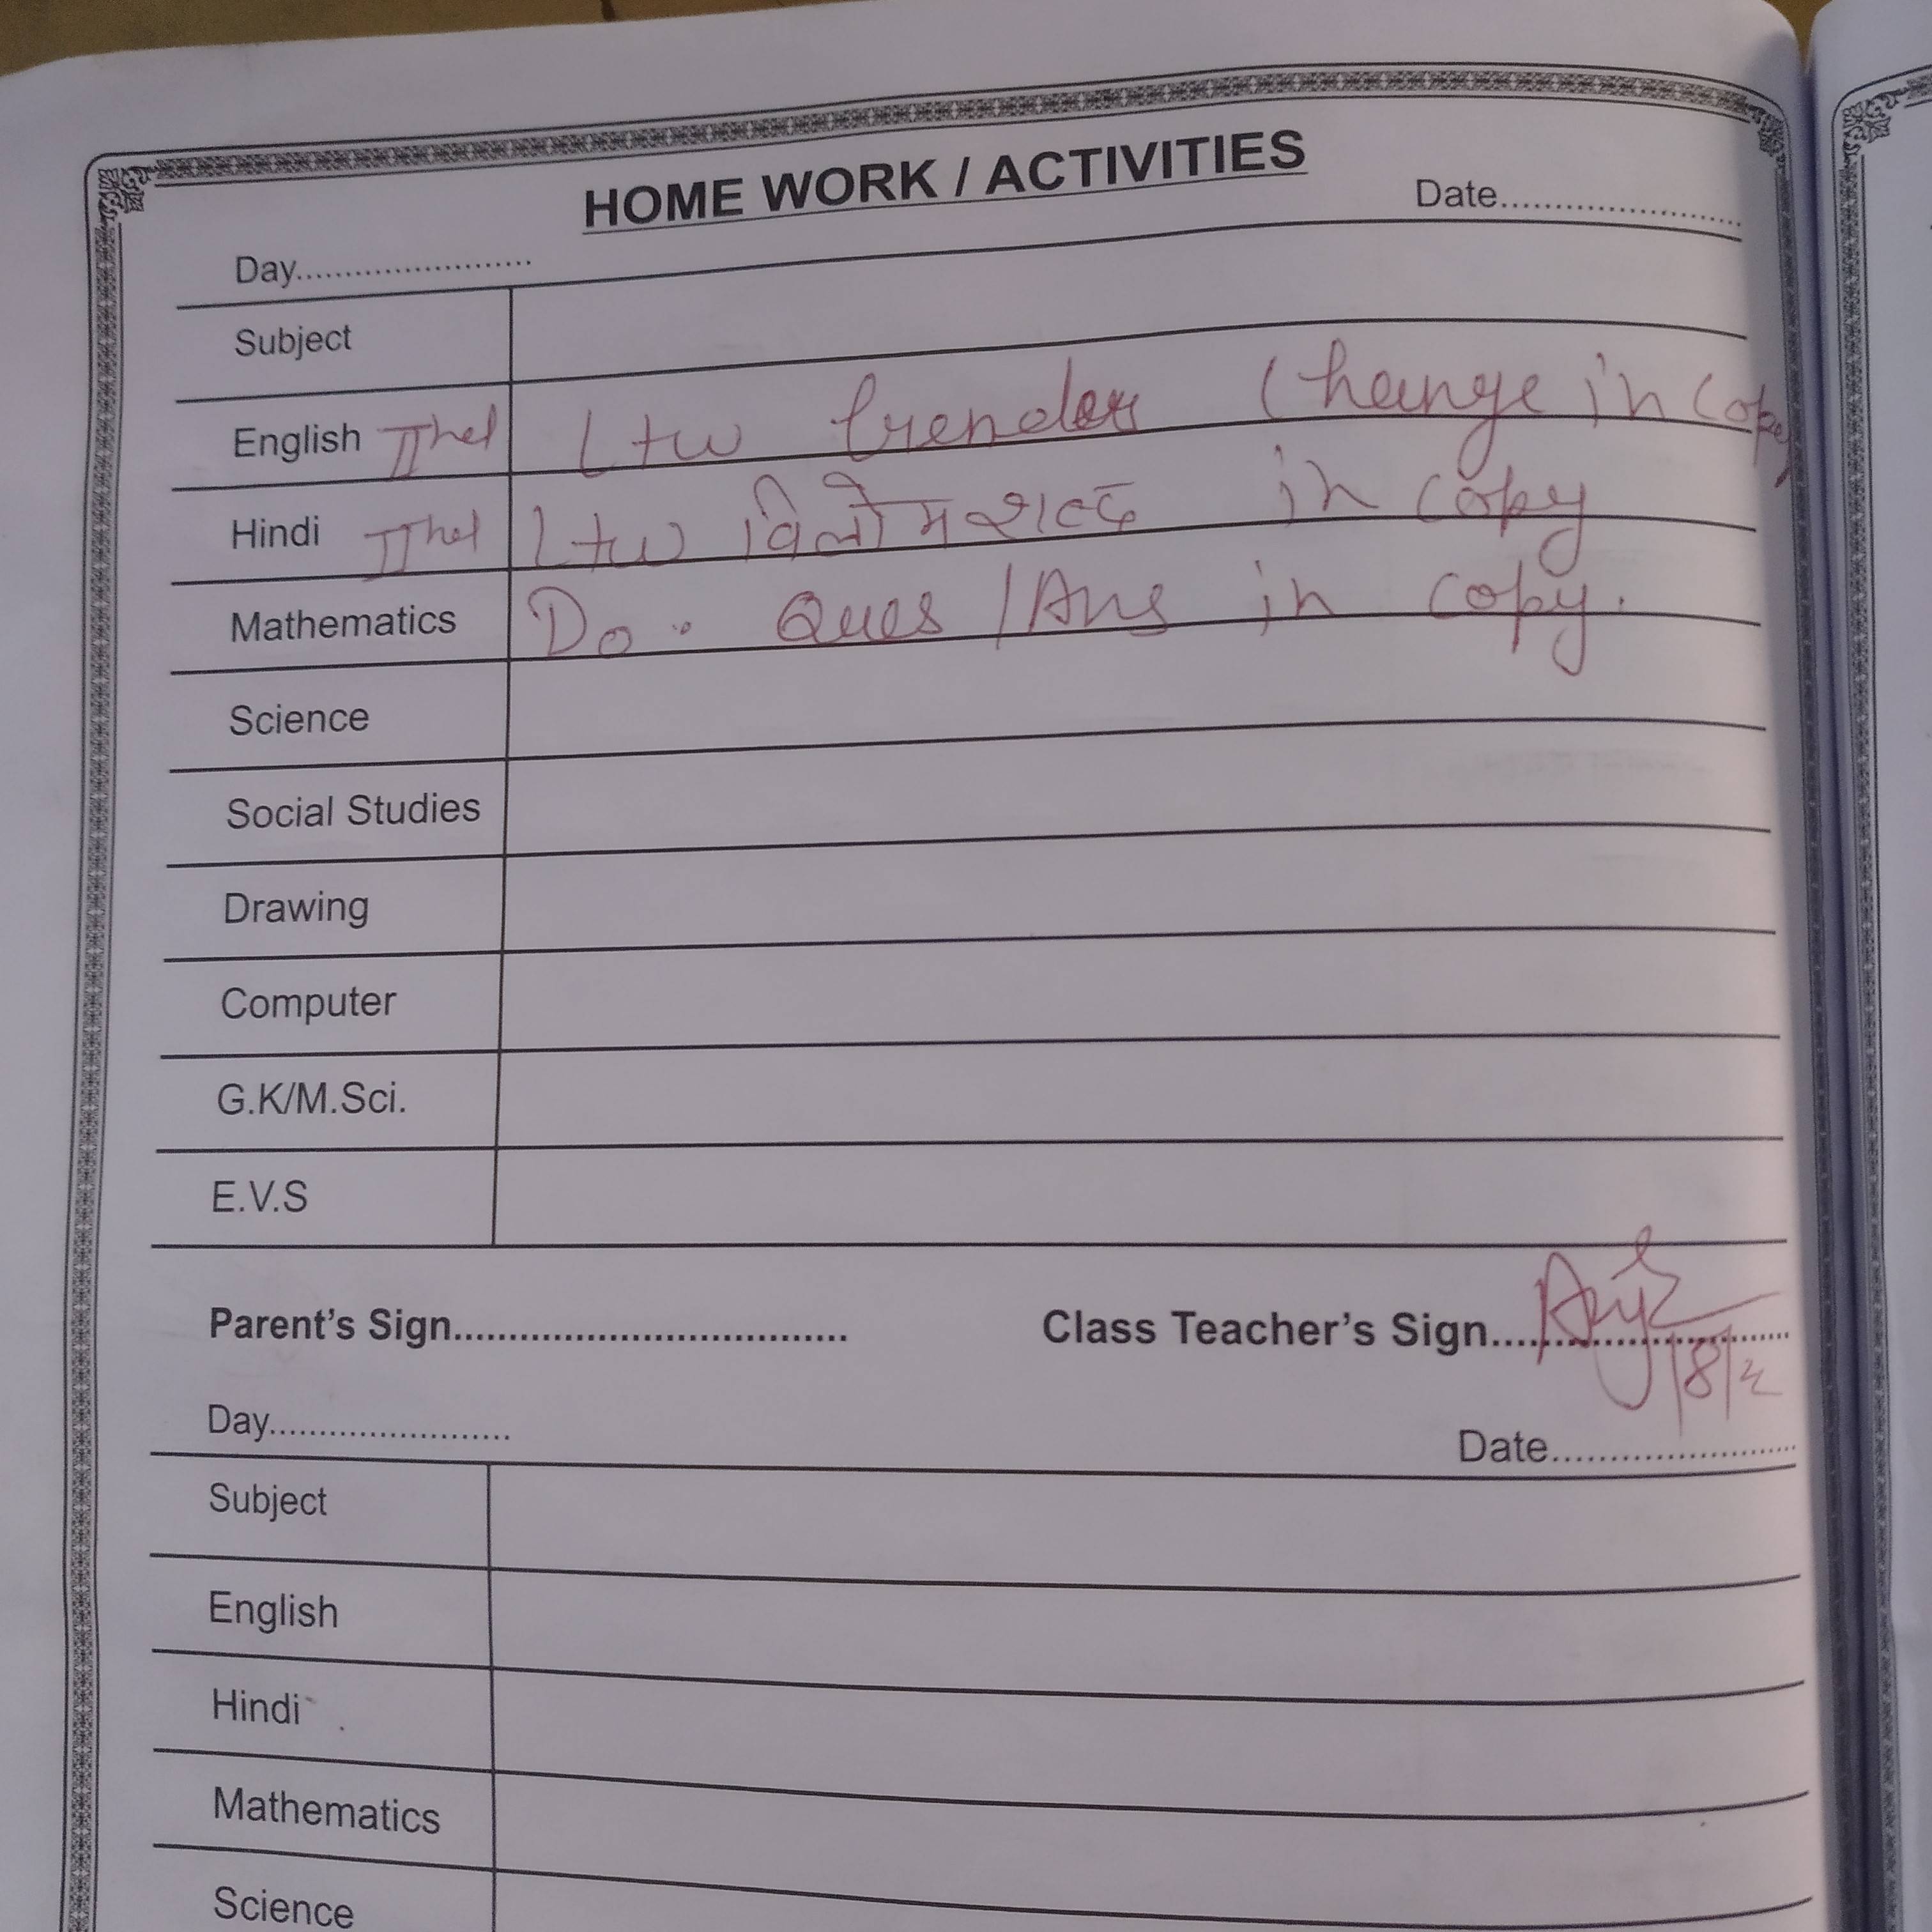 HOME WORK / ACTIVITIES
Day........................ Date........................
Subject
English IInd L+w Gender Change in Copy
Hindi IInd L+w विलोम शब्द in copy
Mathematics Do. Ques/Ans in copy.
Science
Social Studies
Drawing
Computer
G.K/M.Sci.
E.V.S
Parent's Sign................................... Class Teacher's Sign...........................
Day........................ Date........................
Subject
English
Hindi
Mathematics
Science